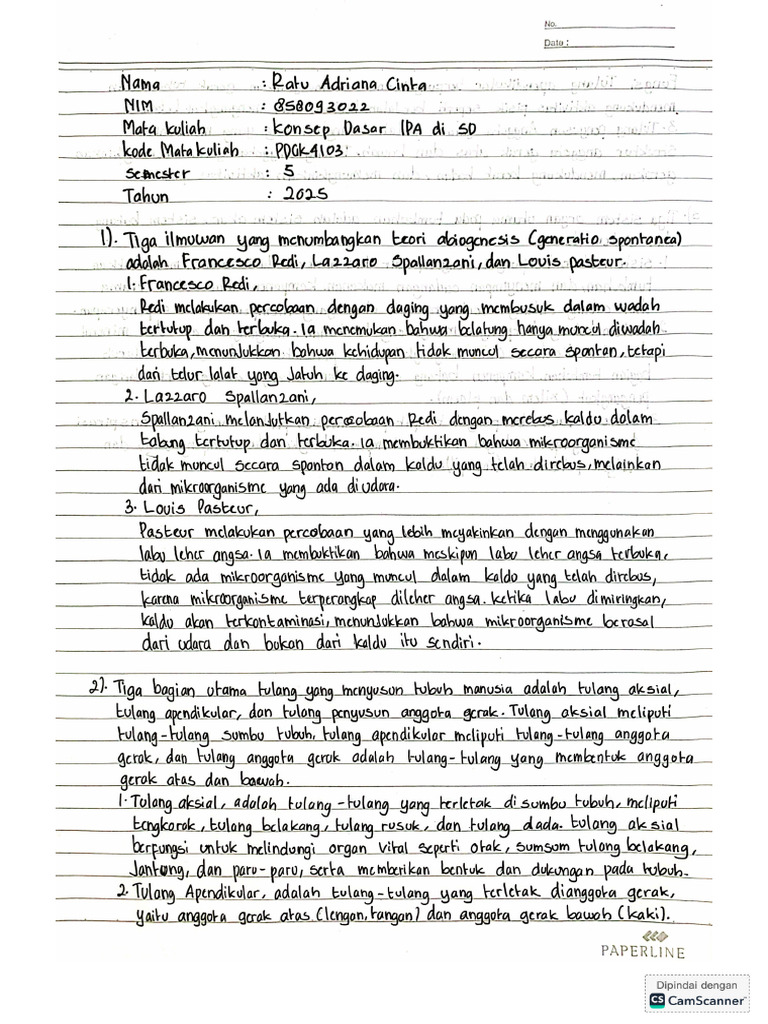 No.
Date :
Nama : Ratu Adriana Cinta
NIM : 858093022
Mata kuliah : Konsep Dasar IPA di SD
kode Mata kuliah : PDGK4103
Semester : 5
Tahun : 2025
1). Tiga ilmuwan yang menumbangkan teori abiogenesis (generatio spontanea)
adalah Francesco Redi, Lazzaro Spallanzani, dan Louis pasteur.
1. Francesco Redi,
Redi melakukan percobaan dengan daging yang membusuk dalam wadah
tertutup dan terbuka. Ia menemukan bahwa belatung hanya muncul diwadah
terbuka, menunjukkan bahwa kehidupan tidak muncul secara spontan, tetapi
dari telur lalat yang Jatuh ke daging.
2. Lazzaro Spallanzani,
Spallanzani melanjutkan percobaan Redi dengan merebus kaldu dalam
tabung tertutup dan terbuka. Ia membuktikan bahwa mikroorganisme
tidak muncul secara spontan dalam kaldu yang telah direbus, melainkan
dari mikroorganisme yang ada diudara.
3. Louis Pasteur,
Pasteur melakukan percobaan yang lebih meyakinkan dengan menggunakan
labu leher angsa. Ia membuktikan bahwa meskipun labu leher angsa terbuka,
tidak ada mikroorganisme yang muncul dalam kaldo yang telah direbus,
karena mikroorganisme terperangkap dileher angsa. Ketika labu dimiringkan,
kaldu akan terkontaminasi, menunjukkan bahwa mikroorganisme berasal
dari udara dan bukan dari kaldu itu sendiri.
2). Tiga bagian utama tulang yang menyusun tubuh manusia adalah tulang aksial,
tulang apendikular, dan tulang penyusun anggota gerak. Tulang aksial meliputi
tulang-tulang sumbu tubuh, tulang apendikular meliputi tulang-tulang anggota
gerak, dan tulang anggota gerak adalah tulang-tulang yang membentuk anggota
gerak atas dan bawah.
1. Tulang aksial, adalah tulang-tulang yang terletak di sumbu tubuh, meliputi
tengkorak, tulang belakang, tulang rusuk, dan tulang dada. tulang aksial
berfungsi untuk melindungi organ vital seperti otak, sumsum tulang belakang,
Jantung, dan paru-paru, serta memberikan bentuk dan dukungan pada tubuh.
2. Tulang Apendikular, adalah tulang-tulang yang terletak dianggota gerak,
yaitu anggota gerak atas (lengan, tangan) dan anggota gerak bawah (kaki).
PAPERLINE
Dipindai dengan
CS CamScanner